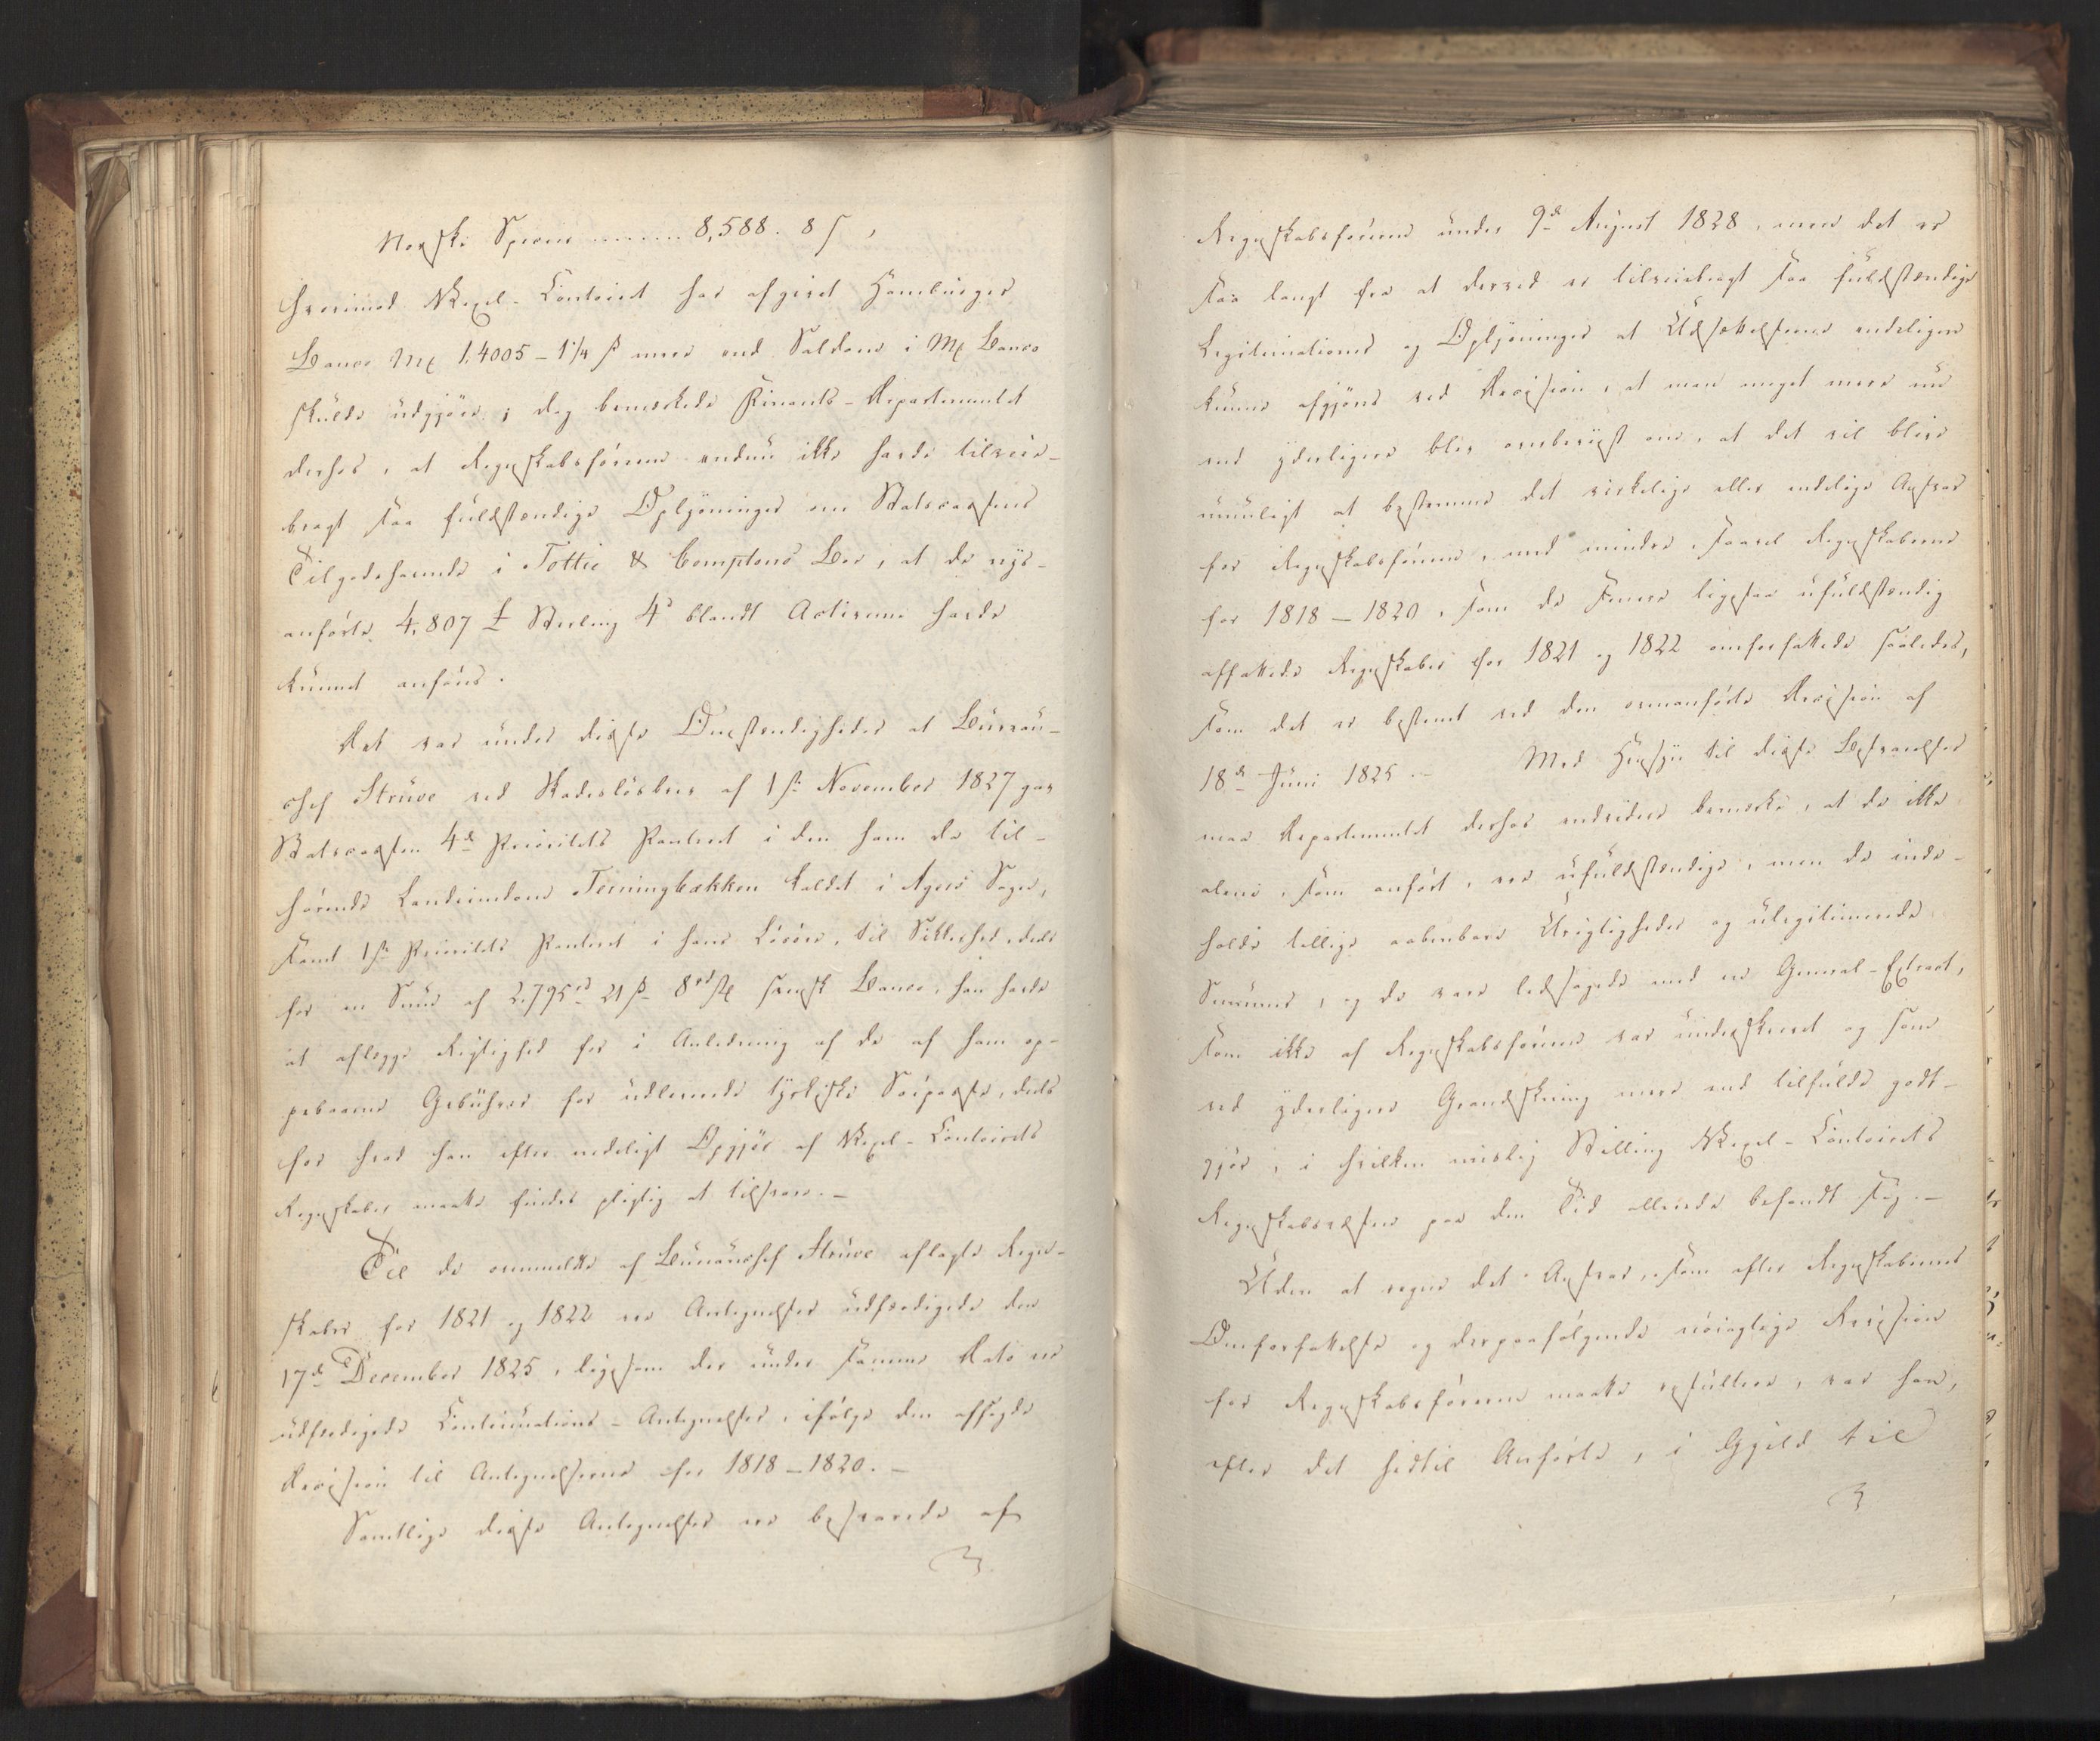 Norske Species ........ 8,588. 8 s,
hvorimod Vexel-Contoiret har afgivet Hamburger
Banco M# 1,4005 - 1 1/4 ß mere end Saldoen i M# Banco
skulde udgjøre; dog bemærkede Finants-Departementet
derhos, at Regnskabsføreren endnu ikke havde tilveie-
bragt saa fuldstændige Oplysninger om Statscassens
Tilgodehavende i Tottie & Comptons Boe, at de nys-
anførte 4,807 £ Sterling 4 s blandt Activerne havde
kunnet anføres.
Det var under disse Omstændigheder at Bureau-
chef Strüve ved Skadesløsbrev af 1ste November 1827 gav
Statscassen 4de Prioritets Panteret i den ham da til-
hørende Landeiendom Terningbækken kaldet i Agers Sogn,
samt 1ste Prioritets Panteret i hans Løsøre, til Sikkerhed, deels
for en Sum af 2,795 rd 21 ß 8 rst svensk Banco, han havde
at aflægge Rigtighed for i Anledning af de af ham op-
pebaarne Gebührer for udleverede tyrkiske Søepasse, deels
for hvad han efter endeligt Opgjør af Vexel-Contoirets
Regnskaber maatte findes pligtig at tilsvare. –
Til de ommeldte af Bureauchef Strüve aflagte Regn-
skaber for 1821 og 1822 ere Antegnelser udfærdigede den
17de December 1825, ligesom der under samme Dato er
udfærdigede Continuations-Antegnelser, ifølge den afsagde
Decision til Antegnelserne for 1818-1820. –
Samtlige disse Antegnelser ere besvarede af
Regnskabsføreren under 9de August 1828, men det er
saa langt fra at derved er tilveiebragt saa fuldstændige
Legitimationer og Oplysninger at Udsættelserne endeligen
kunne afgjøres ved Decision, at man meget mere nu
end yderligere blev overbeviist om, at det vil blive
umuligt at bestemme det virkelige eller endelige Ansvar
for Regnskabsføreren, med mindre, saavel Regnskaberne
for 1818 – 1820, som de senere ligesaa ufuldstændig
affattede Regnskaber for 1821 og 1822 omforfattede saaledes,
som det er bestemt ved den ovenanførte Decision af
18de Juni 1825. – Med Hensyn til disse Besvarelser
maa Departementet derhos endvidere bemærke, at de ikke
alene, som anført, ere ufuldstændige, men de inde-
holde tillige aabenbare Urigtigheder og ulegitimerede
Summer, og de vare ledsagede med en General-Extract,
som ikke af Regnskabsføreren var underskrevet og som
ved yderligere Grandskning mere end tilfulde godt-
gjør, i hvilken mislig Stilling Vexel-Contoirets
Regnskabsvæsen paa den Tid allerede befandt sig. –
Uden at regne det Ansvar, som efter Regnskabernes
Omforfattelse og derpaafølgende nøiagtige Decision
for Regnskabsføreren maatte resultere, var han,
efter det hidtil Anførte, i Gjeld til